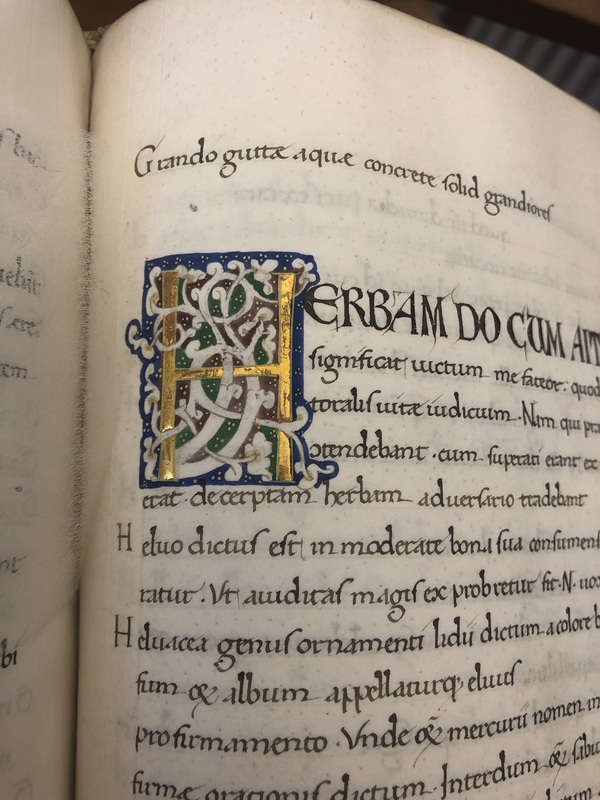 Grando guttæ aquæ concrete solid grandiores
HERBAM DO CUM AIT
significat uictum me fateor: quod
toralis uitæ iudicium. Nam qui pra
otendebant. cum superati erant ex
erat. decerptam herbam aduersario tradebant
Heluo dictus est in moderate bona sua consumens
ratur. Ut auiditas magis ex probretur fit. N. uox
Heluacea genus ornamenti lidii dictum a colore b
fum album appellaturq; eluus
pro firmamento. Vnde mercurii nomen in
firmæ orationis dictum. Interdum